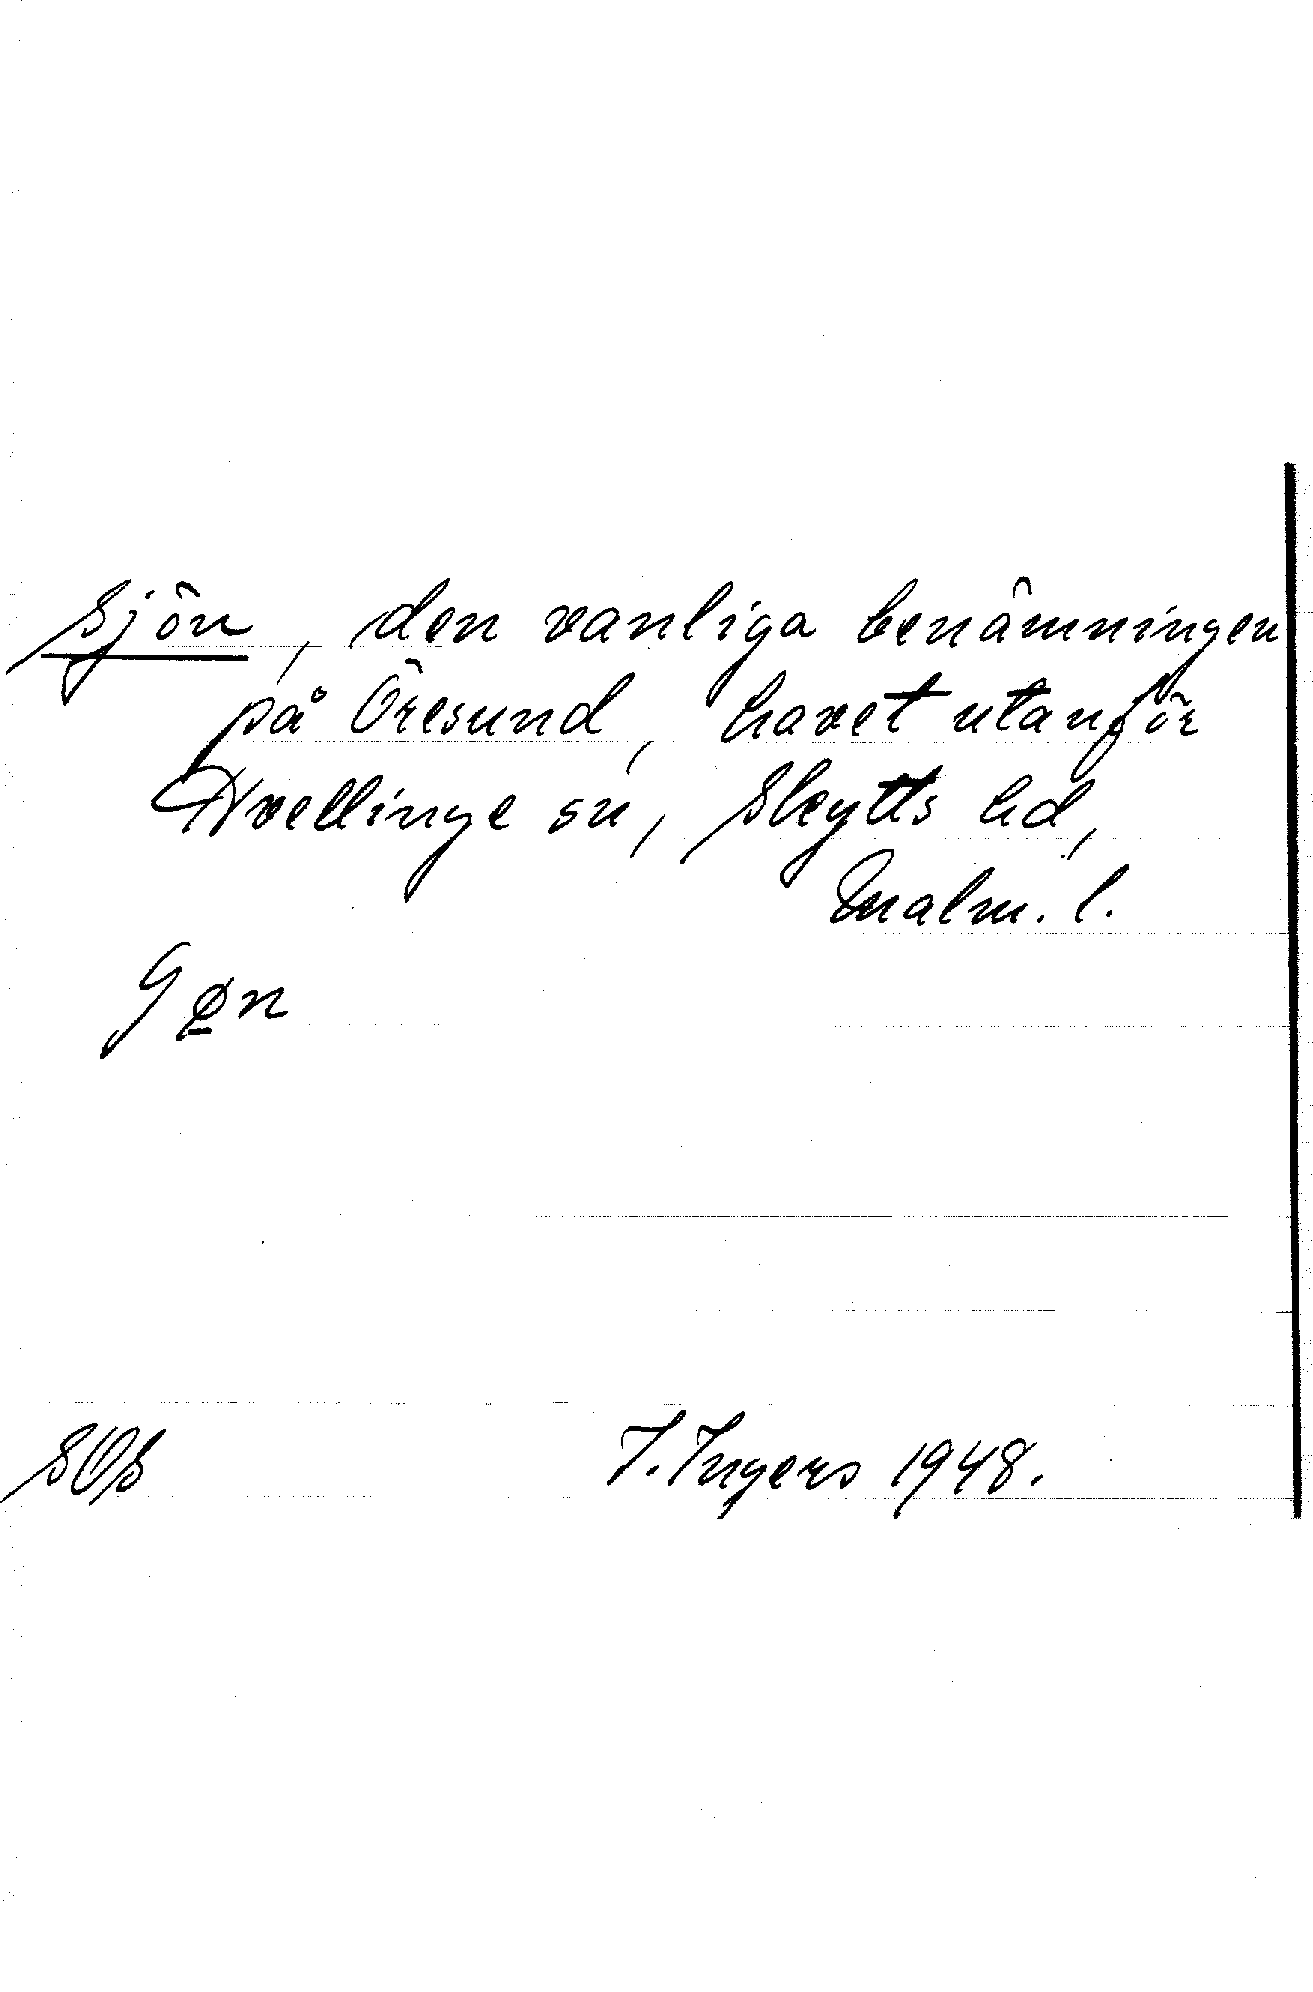 sjön, den vanliga benämningen
på Öresund, havet utanför
Vellinge sn, Skytts hd,
Malm. l.
SOS I. Ingers 1948.